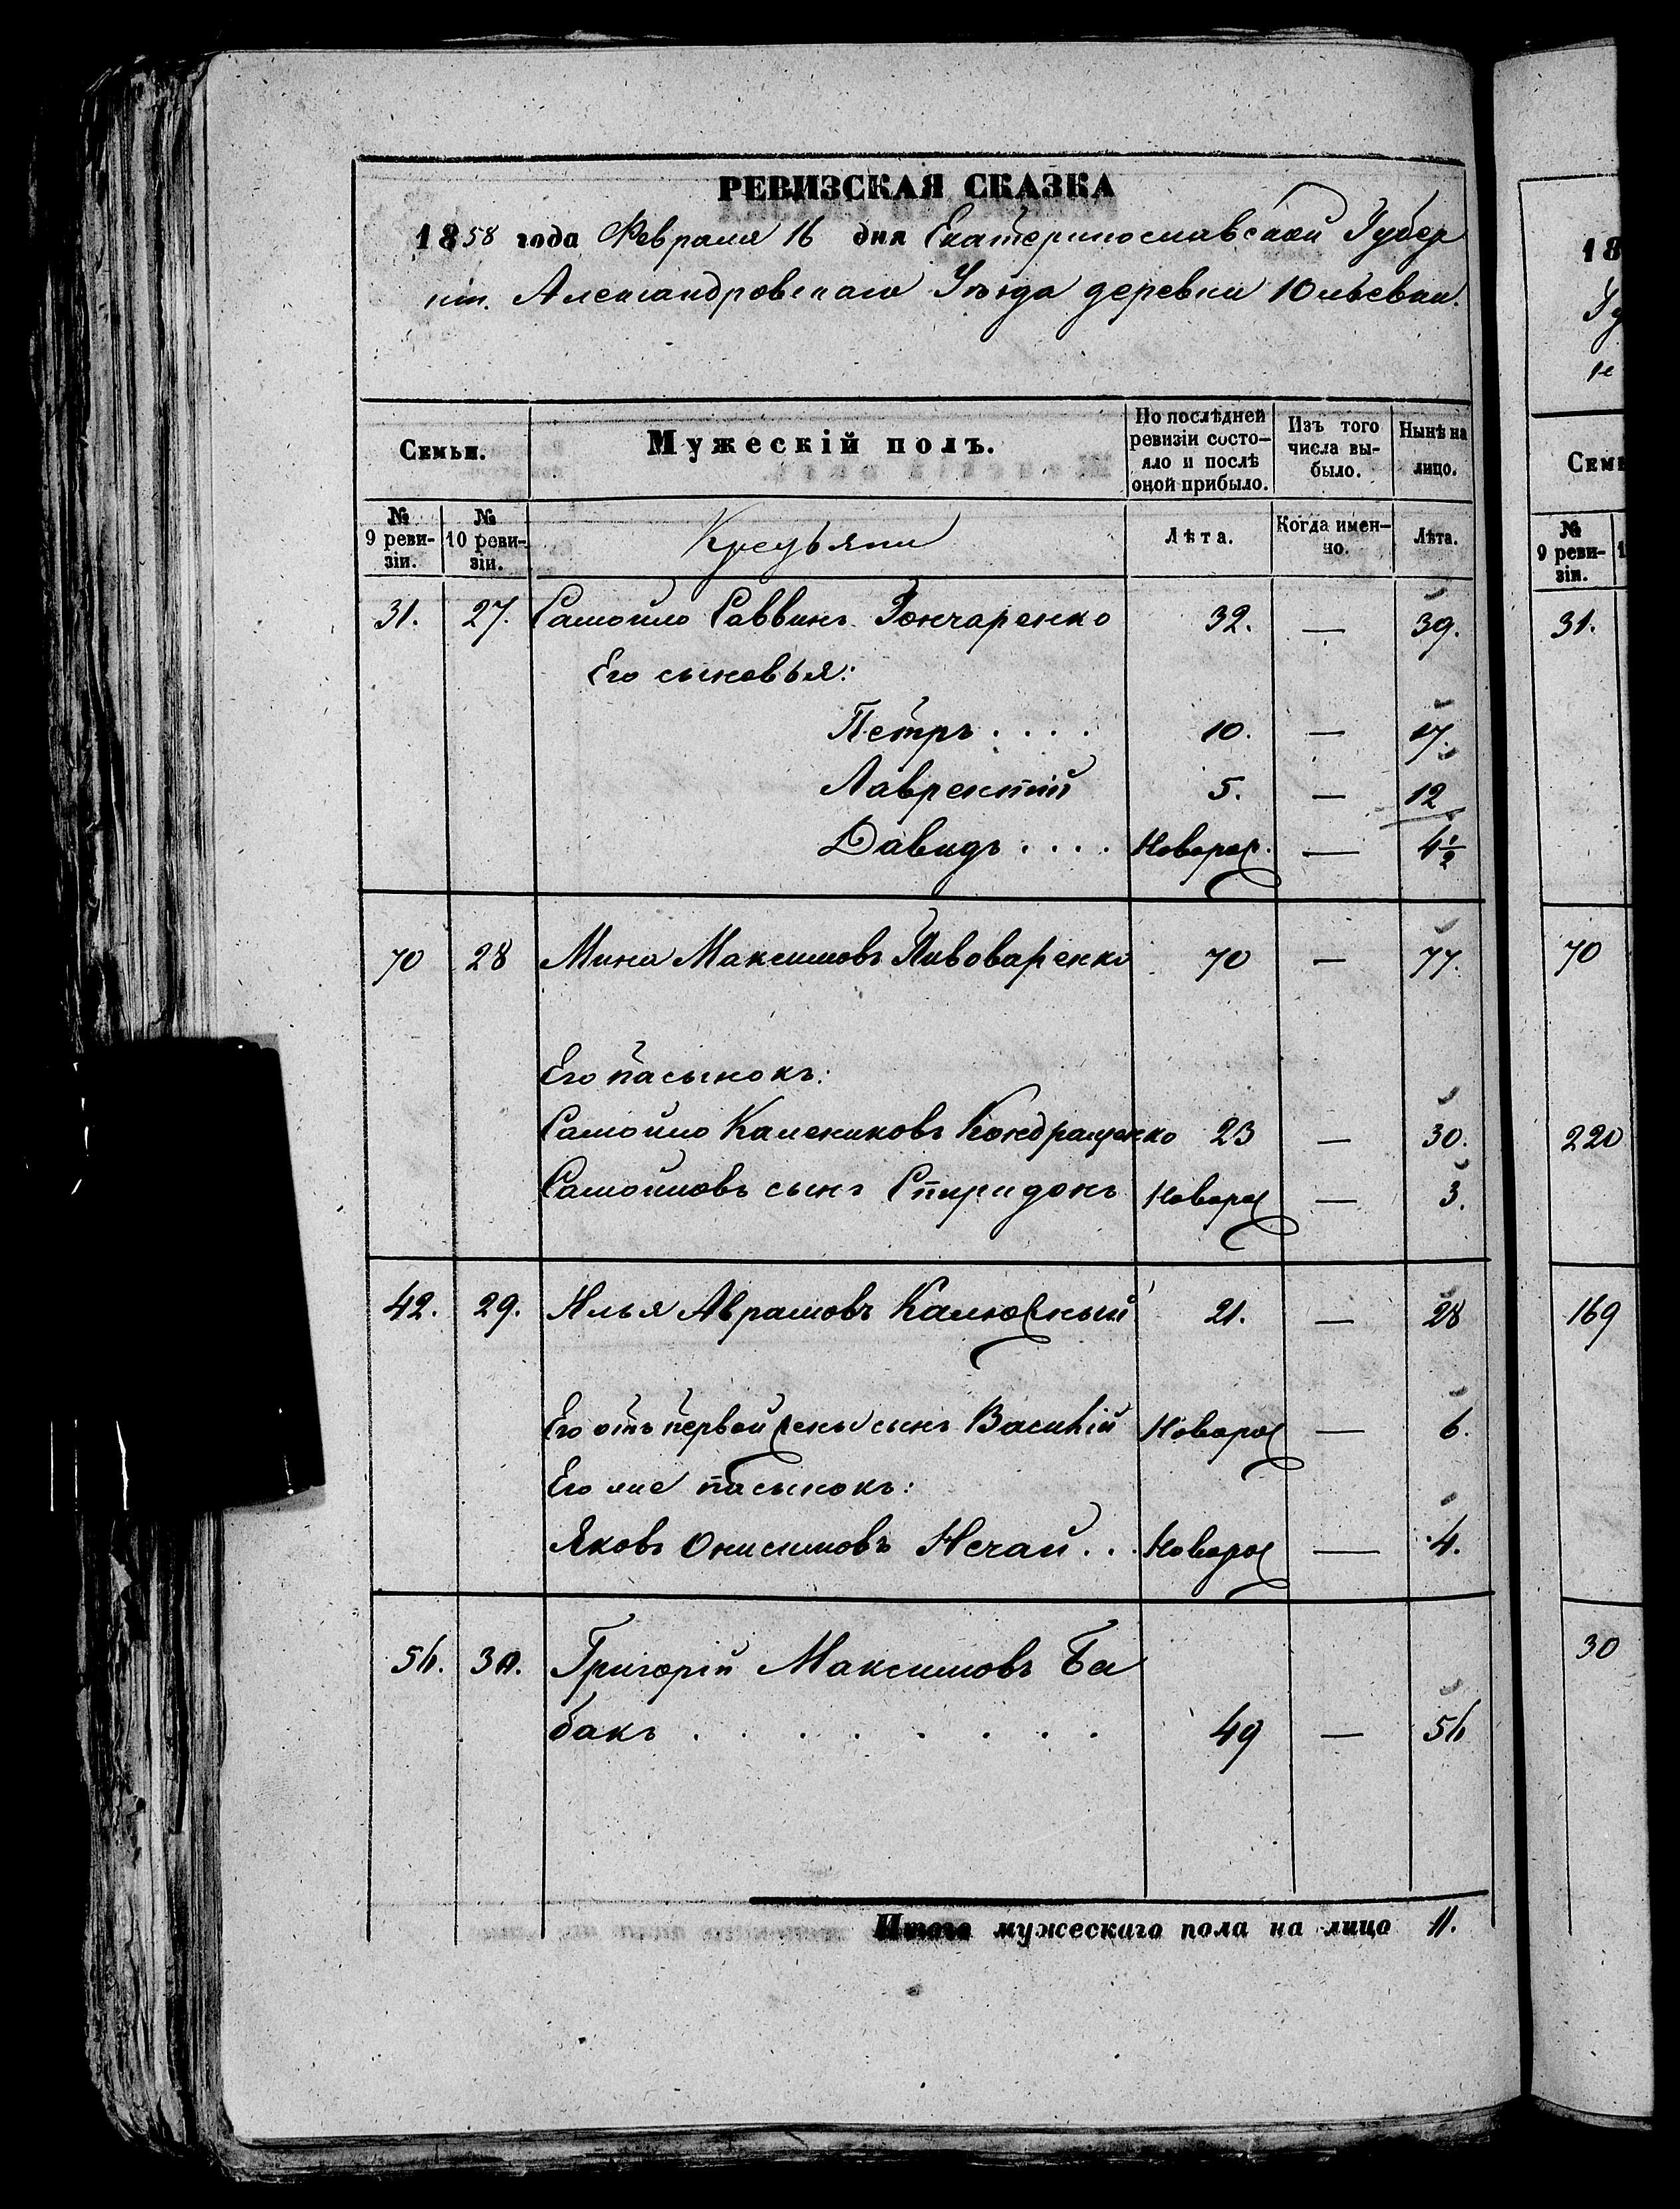 РЕВИЗСКАЯ СКАЗКА
1858 года Февраля 16 дня Екатеринославской Губер
ніи. Александровскаго Уѣзда деревни Юльевки.
Семьи.
Мужескій полъ.
По послѣдней ревизіи состояло и послѣ оной прибыло.
Изъ того числа выбыло.
Нынѣ на лицо.
№ 9 ревизіи.
№ 10 ревизіи.
Крестьяни
Лѣта.
Когда именно.
Лѣта.
31. 27. Самойло Саввинъ Гончаренко 32. — 39.
Его сыновья:
Петръ . . . . 10. — 17.
Лаврентій 5. — 12
Давидъ . . . . Новорож. — 4 1/2
70 28 Мина Максимовъ Пивоваренко 70 — 77.
Его пасынокъ:
Самойло Калениковъ Кондращенко 23 — 30.
Самойловъ сынъ Спиридонъ Новорож — 3.
42. 29. Илья Аврамовъ Калюжный 21. — 28
Его отъ первой жены сынъ Василій Новорож — 6.
Его же пасынокъ:
Яковъ Онисимовъ Нечай . . . Новорож — 4.
56. 30. Григорій Максимовъ Ба
бакъ . . . . . . . . 49 — 56
Итого мужескаго пола на лицо 11.
18
Гу
Семь
№ 9 ревизіи.
31.
70
220
169
30